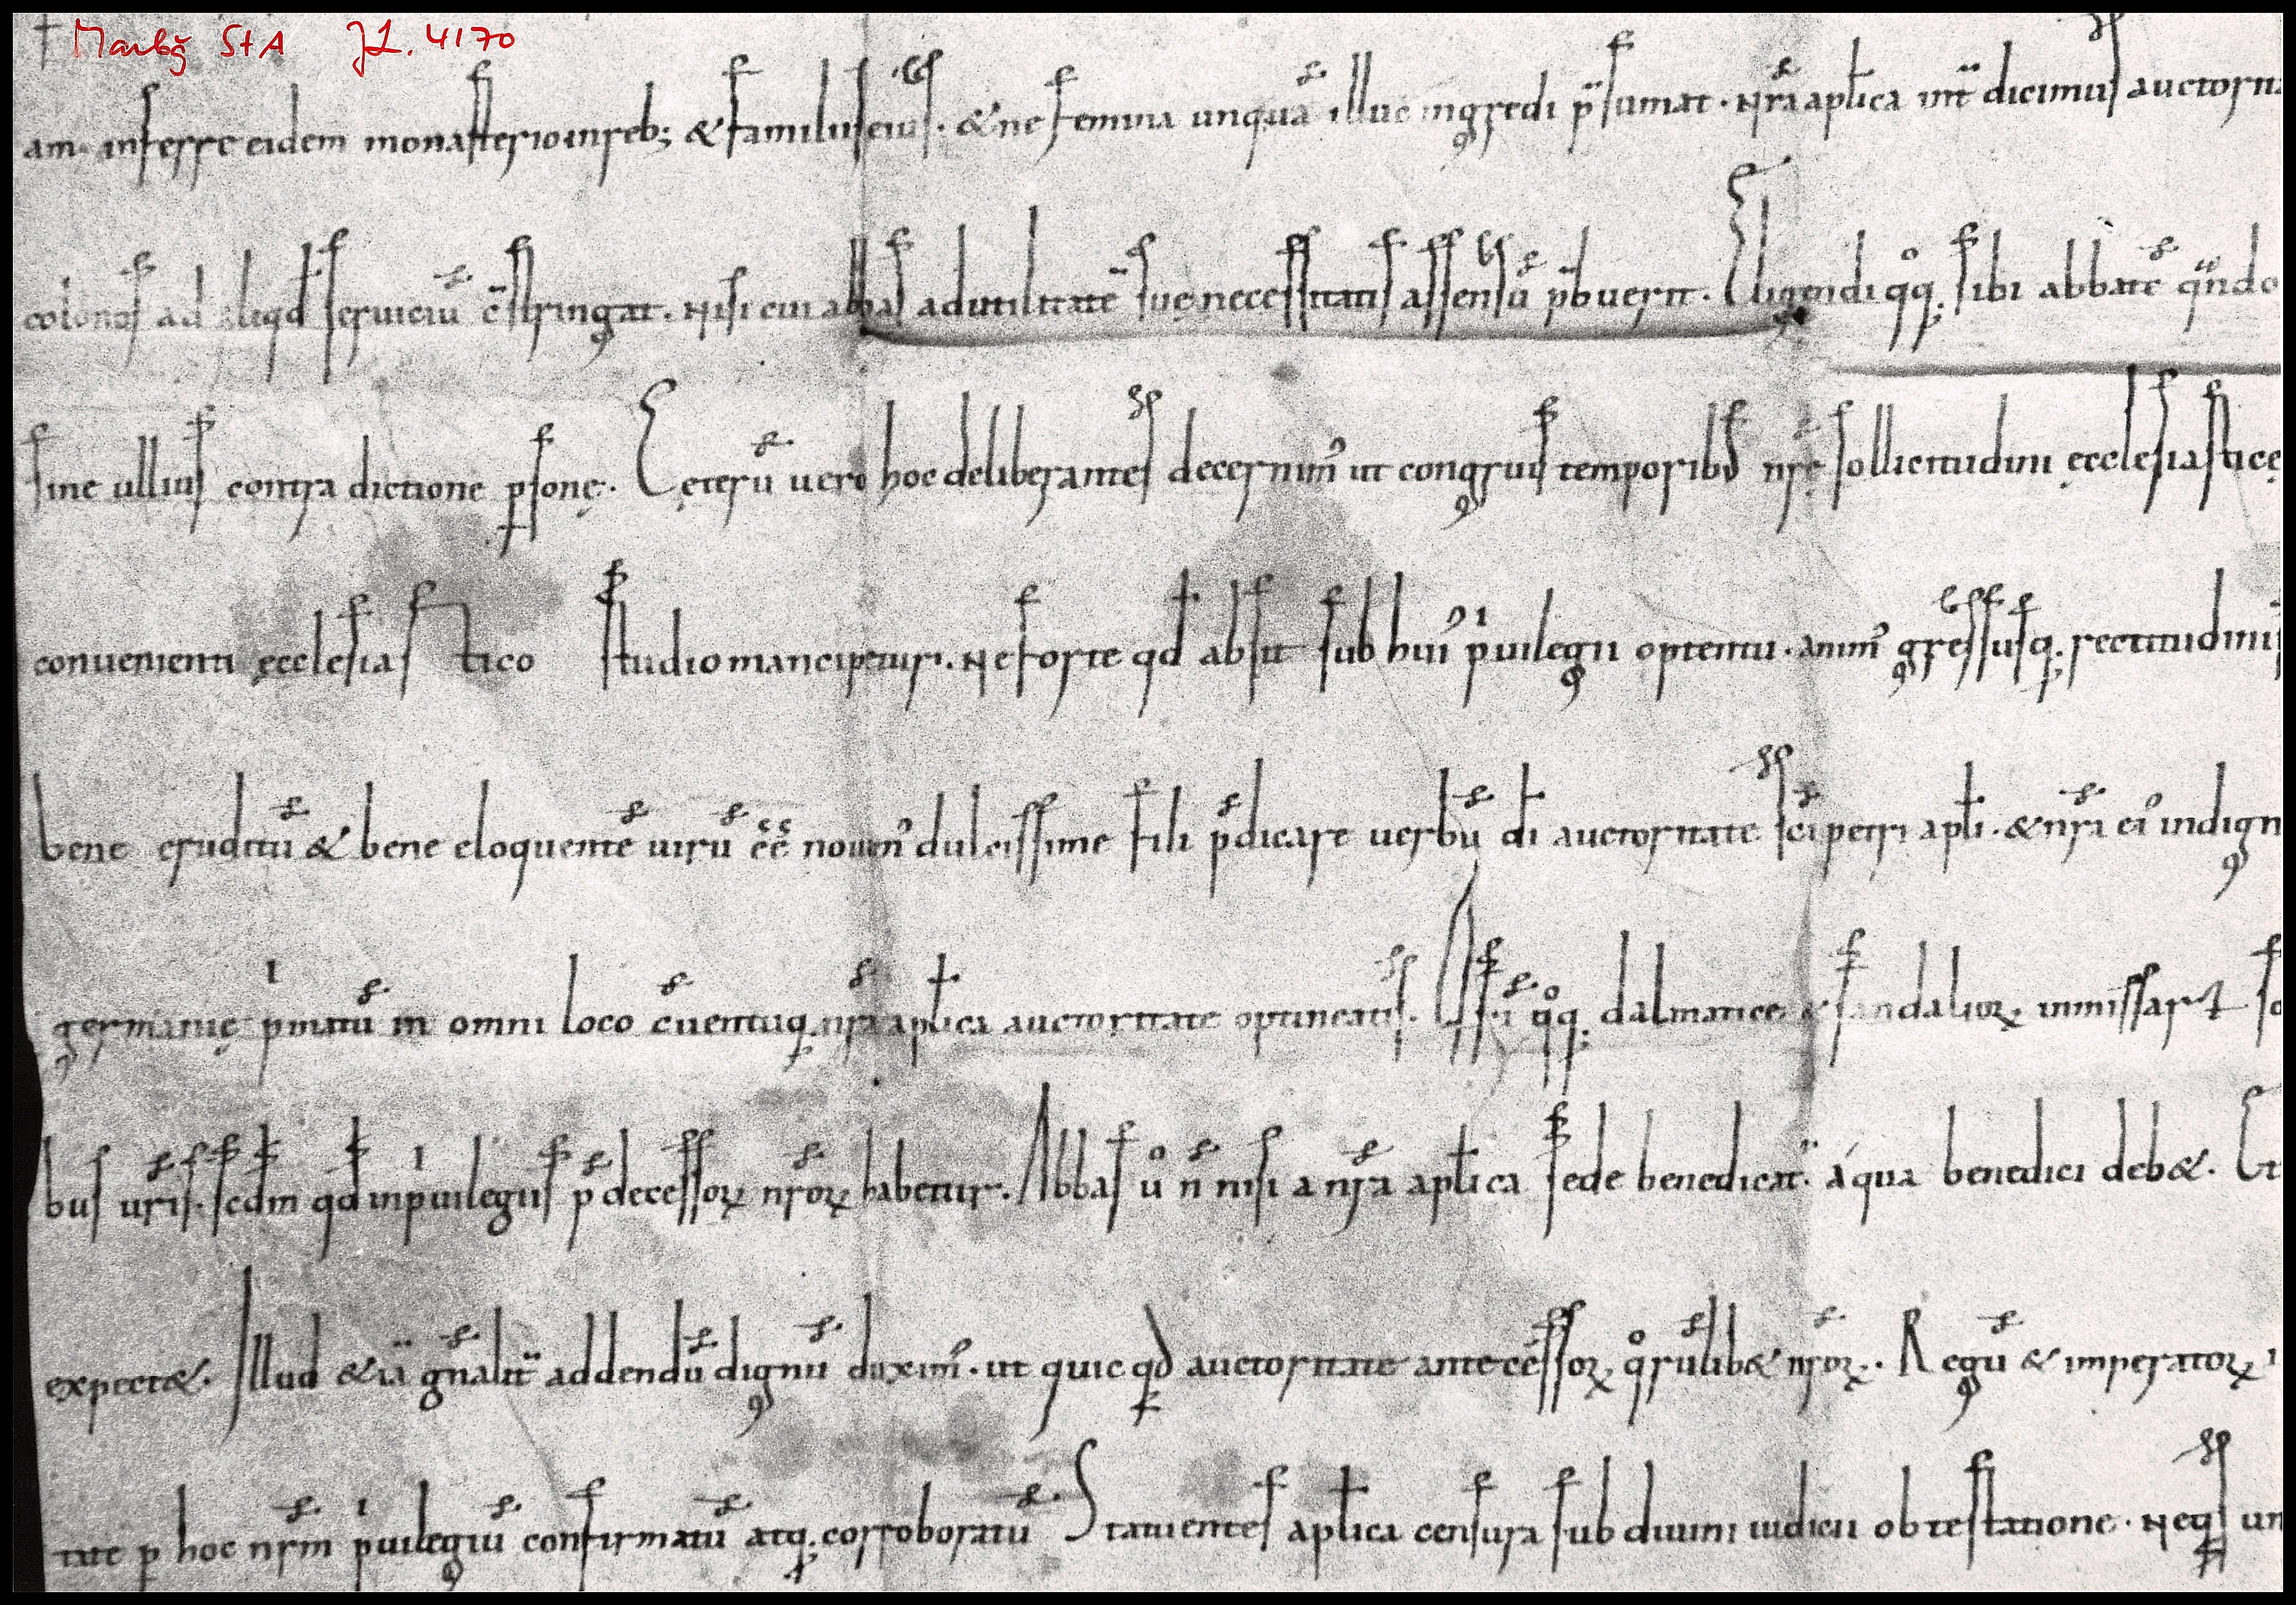 Marbg StA JL. 4170
am inferre eidem monasterio in reb; & familiis eius. & ne femina unquā illuc ingredi p̄sumat. Nr̄a apl̄ica int̄dicimus auctorit
colonos ad aliqd̄ seruiciū cōstringat. Nisi cui abbas ad utilitatē suę necessitatis assensū p̄buerit. Eligendi qͦq; sibi abbatē qͣndo
sine ullius contradictione ꝑsonę. Ceterū uero hoc deliberantes decernim᾽ ut congruis temporib᾽ nr̄ę sollicitudini ęcclesiasticę
conuenienti ęcclesiastico studio mancipetur. Ne forte qd̄ absit sub hui᾽ pͥuilegii optentu. anim᾽ gressusq; rectitudinis
bene eruditū & bene eloquentē uirū ēē nouim᾽ dulcissime fili p̄dicare uerbū dī auctoritate sc̄i petri apl̄i. & nr̄a ei᾽ indign
germanię pͥmatū in omni loco c̄uentuq; nr̄a apl̄ica auctoritate optineatis. Usū qͦq; dalmaticę & sandalioꝝ in missarꝝ so
bus ur̄is. secdm̄ qd̄ in pͥuilegiis p̄decessoꝝ nr̄oꝝ habetur. Abbas ů n̄ nisi a nr̄a apl̄ica sede benedicat᾽ a qua benedici deb&. Et
expect&. Illud &iā gn̄alit̄ addendū dignū duxim᾽. ut quicqd̄ auctoritate antecessoꝝ qͦrūlib& nr̄oꝝ. Regū & imperatoꝝ
tate ꝑ hoc nr̄m pͥuilegiū confirmatū atq; corroboratū Statuentes apl̄ica censura sub diuini iudicii obtestatione. Neq;